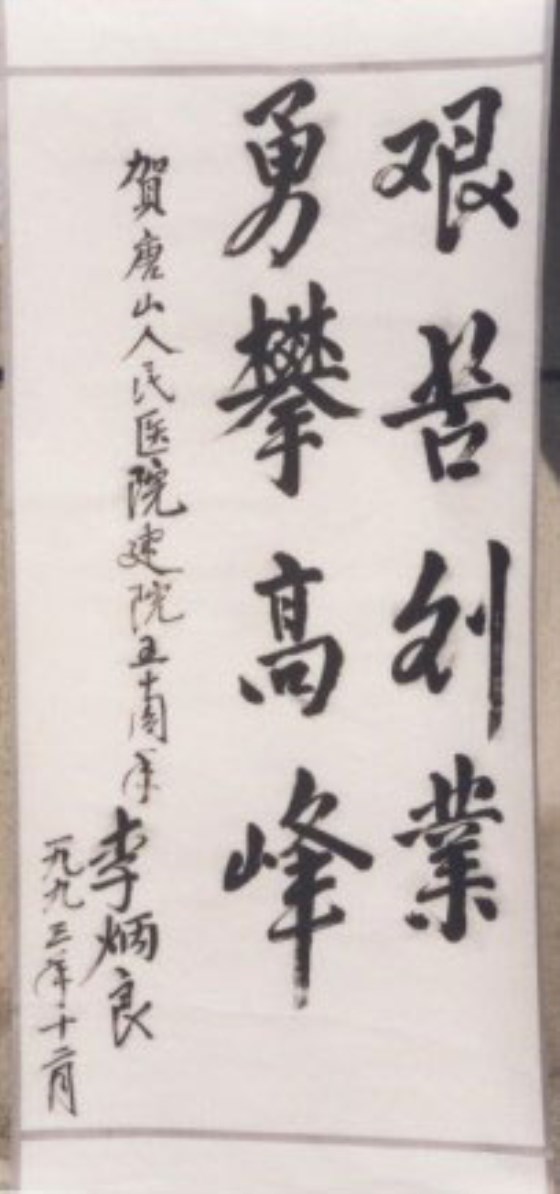 艰苦创业
勇攀高峰
賀唐山人民医院建院五十周年
李炳良
一九九三年十二月